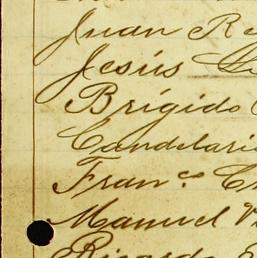 Juan Re
Jesús
Brigido
Candelari
Fran.co C
Manuel V
Ricardo